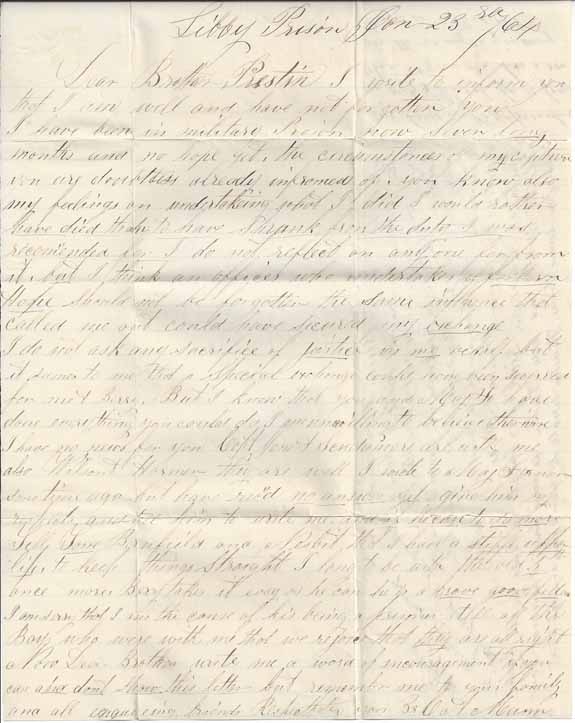 Libby Prison Jan 23rd/64
Dear Brother Preston I write to inform you
that I am well and have not forgotten you
I have been in military Prison now seven long
months and no hope yet. the circumstances of my capture
you are doubtless already informed of. you know also
my feelings on undertaking what I did I would rather
have died than to have Shrank from the duty I was
recomended for I do not reflect on any one far from
it, but I think an officer who undertakes a forlorn
Hope should not be forgotten the same influence that
called me out could have secured my exchange
I do not ask any sacrifice of parties in my behalf but
it seems to me that a special exchange could have been
for me & Berry. But I know that you and have
done everything you could do, I am unwilling to believe
I have no news for you Capt are with me
also Wilson & Harmon they are well I wrote to
sometime ago but have rec'd no answer yet give him my
and tell him to write me
Tell and that I had a
to keep things straight I long to be with the
once more Berry takes it easy as he can he is a brave good fellow
I am sorry that I am the cause of his being a prisoner tell all the
Boys who were with me that we rejoice that they are all right
Now Dear Brother write me a word of encouragement if you
can & don't this letter but remember me to your family
and all enquiring friends